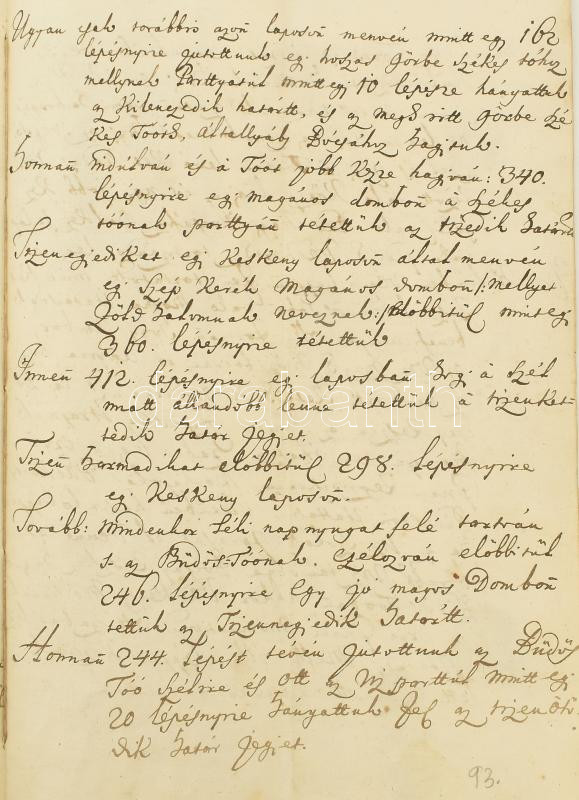 Ugyan csak továbbro azon laposon menvén mintt egy 162
lépésnyire jutottunk egy hoszas görbe székes tóhoz
mellynek Parttyátul mintt egy 10 lépésre hányattuk
az Kilenczedik határtt, és az megh irtt Görbe Szé-
kes Toótt, általlyáb Bócsához hagituk.
Honnan indulván és a Toót jobb Kézre hagyván: 340.
lépésnyire egy magános dombon a Székes
tóonak parttyán tétettük az tizedik határt
Tizenegyediket egy Keskeny laposon által menvén
egy Szép Kerék Maganos dombon /: mellyet
Zöld halomnak neveznek :/ Elöbbitül mint egy
360. lépésnyire tétettük
Innen 412. lépésnyire egy laposban hogy a Szél
miatt állandóbb lenne tétettük a tizenket-
tedik határ jegyet.
Tizen harmadikat elöbbitül 298. lépésnyire
egy Keskeny laposon.
Tovább: mindenkor Téli nap nyugat felé tartván
s az Büdös-Toónak czélozván elöbbitül
246. lépésnyire Egy jó magos Dombon
tettük az Tizennegyedik határtt.
Honnan 244. lépést tévén jutottunk az Büdös
Tóó Szélire és ott az Viz parttul mintt egy
20 lépésnyire hányattuk fel az tizenötö-
dik határ jegyet.
93.
darabanth